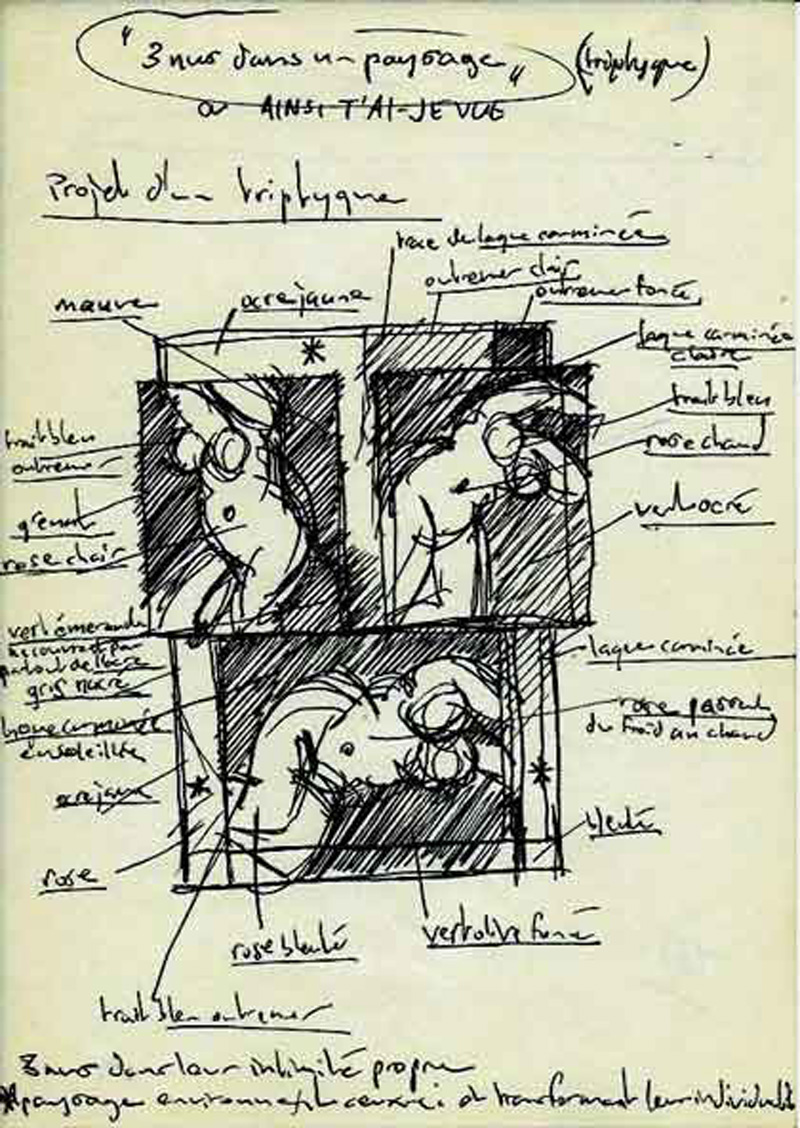 "3 nus dans un paysage" (triptyque)
ou AINSI T'AI-JE VUE
Projet d'un triptyque
trace de laque carminée
outremer clair
outremer foncé
mauve
ocre jaune
laque carminée
claire
trait bleu
rose chaud
vert ocré
trait bleu
outremer
grenat
rose clair
vert émeraude
recouvrant par
partout de l'ocre
gris nacré
laque carminée
rose passant
du froid au chaud
ensoleillée
ocre jaune
bleuté
rose
rose bleuté
vert olive foncé
trait bleu outremer
3 nus dans leur intimité propre
* paysage environnant et transformant leur